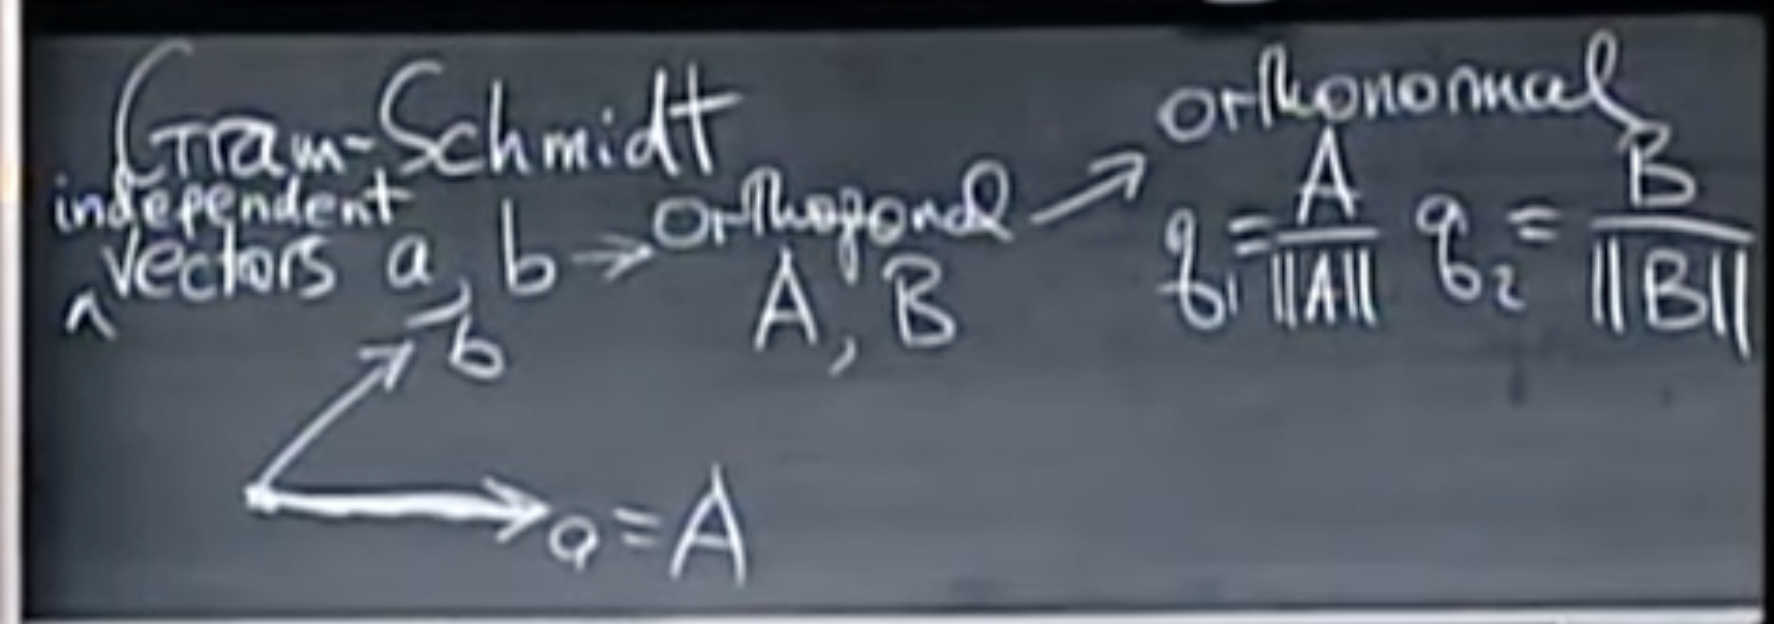 Gram-Schmidt
independent
vectors a, b → orthogonal → orthonormal
A, B
q₁ = A/||A|| q₂ = B/||B||
b
a = A